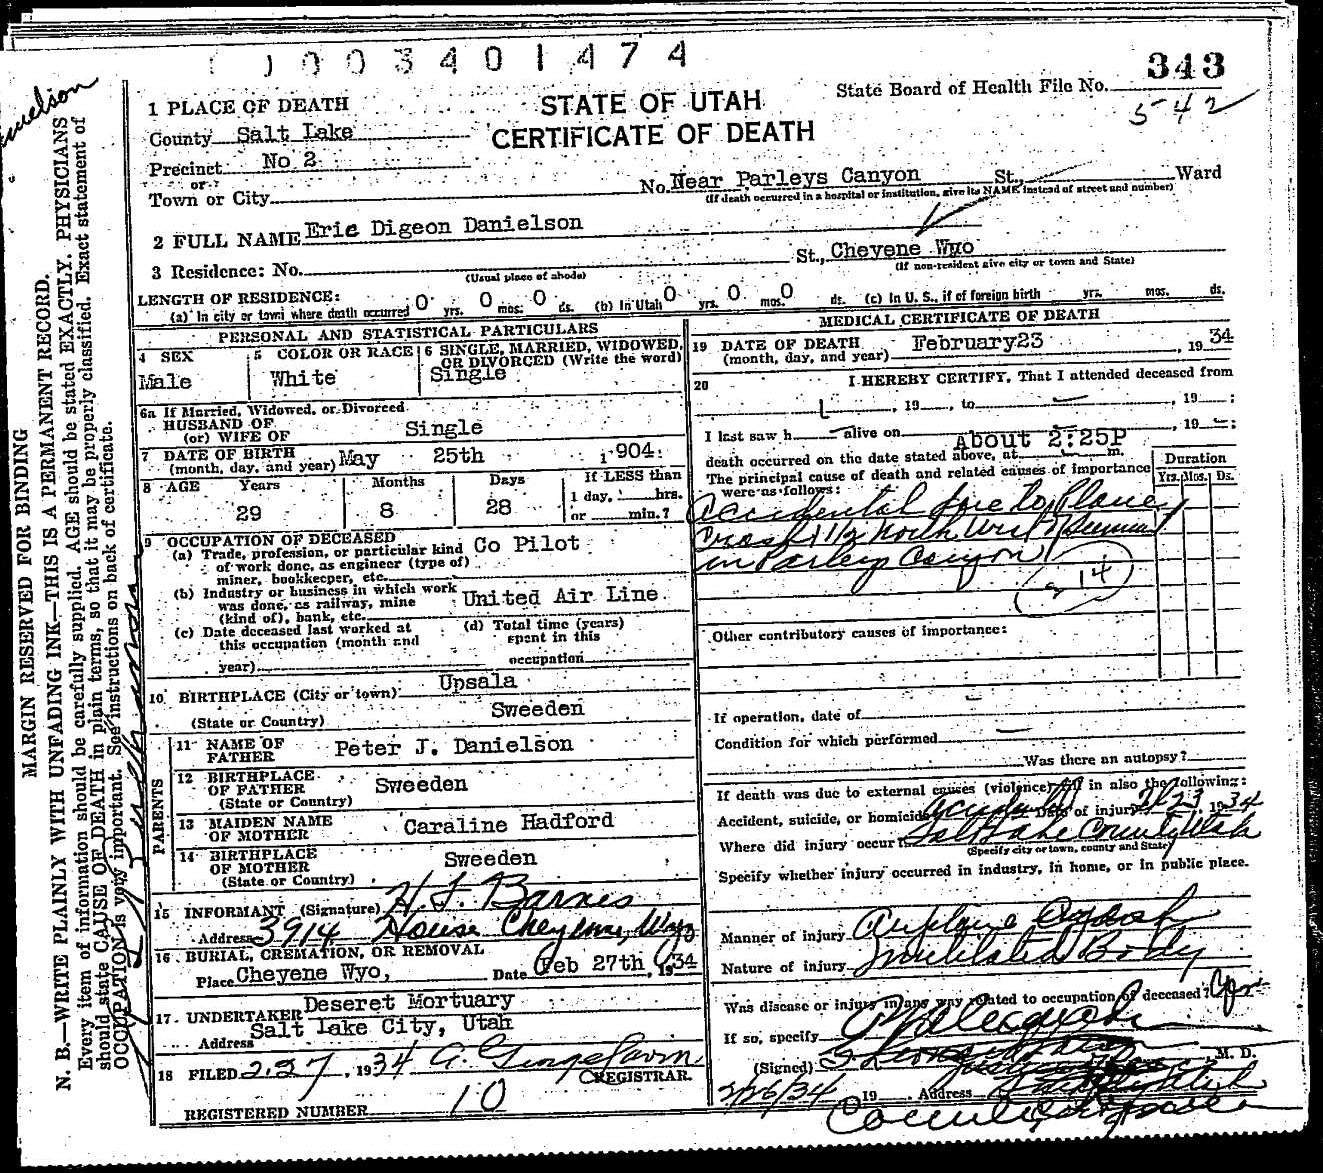 0 0 3 4 0 1 4 7 4
343
State Board of Health File No.
542
STATE OF UTAH
CERTIFICATE OF DEATH
1 PLACE OF DEATH
County Salt Lake
Precinct No 2
or
Town or City
No. Near Parleys Canyon St., Ward
(If death occurred in a hospital or institution, give its NAME instead of street and number)
2 FULL NAME Eric Digeon Danielson
3 Residence: No. St., Cheyene Wyo
(Usual place of abode) (If non-resident give city or town and State)
LENGTH OF RESIDENCE:
(a) In city or town where death occurred 0 yrs. 0 mos. 0 ds. (b) In Utah 0 yrs. 0 mos. 0 ds. (c) In U. S., if of foreign birth yrs. mos. ds.
PERSONAL AND STATISTICAL PARTICULARS
4 SEX
Male
5 COLOR OR RACE
White
6 SINGLE, MARRIED, WIDOWED,
OR DIVORCED (Write the word)
Single
6a If Married, Widowed, or Divorced
HUSBAND OF
(or) WIFE OF Single
7 DATE OF BIRTH
(month, day, and year) May 25th 1904
8 AGE Years Months Days
29 8 28
If LESS than
1 day, hrs.
or min.?
9 OCCUPATION OF DECEASED
(a) Trade, profession, or particular kind Co Pilot
of work done, as engineer (type of)
miner, bookkeeper, etc.
(b) Industry or business in which work
was done, as railway, mine United Air Line
(kind of), bank, etc.
(c) Date deceased last worked at
this occupation (month and
year)
(d) Total time (years)
spent in this
occupation
10 BIRTHPLACE (City or town) Upsala
(State or Country) Sweeden
PARENTS
11 NAME OF
FATHER Peter J. Danielson
12 BIRTHPLACE
OF FATHER Sweeden
(State or Country)
13 MAIDEN NAME
OF MOTHER Caraline Hadford
14 BIRTHPLACE
OF MOTHER Sweeden
(State or Country)
15 INFORMANT (Signature) H. F. Barnes
Address 3914 House Cheyenne, Wyo
16 BURIAL, CREMATION, OR REMOVAL
Place Cheyene Wyo, Date Feb 27th, 1934
17 UNDERTAKER Deseret Mortuary
Address Salt Lake City, Utah
18 FILED 2.27, 1934 REGISTRAR
REGISTERED NUMBER 10
MEDICAL CERTIFICATE OF DEATH
19 DATE OF DEATH
(month, day, and year) February 23, 1934
20 I HEREBY CERTIFY, That I attended deceased from
, 19 , to , 19 ;
I last saw h alive on , 19 ;
death occurred on the date stated above, at About 2:25P m.
The principal cause of death and related causes of importance
were as follows:
Duration
Yrs. Mos. Ds.
Accidental due to Plane
Crash 1 1/2 North West Summit
in Parleys Canyon
14
Other contributory causes of importance:
If operation, date of
Condition for which performed
Was there an autopsy?
If death was due to external causes (violence) fill in also the following:
Accident, suicide, or homicide Accidental Date of injury 2/23 1934
Where did injury occur? Salt Lake County Utah
(Specify city or town, county and State)
Specify whether injury occurred in industry, in home, or in public place.
Manner of injury Airplane Crash
Nature of injury Mutilated Body
Was disease or injury in any way related to occupation of deceased?
If so, specify
(Signed) M. D.
2/26/34 19 Address
MARGIN RESERVED FOR BINDING
N. B.—WRITE PLAINLY WITH UNFADING INK—THIS IS A PERMANENT RECORD.
Every item of information should be carefully supplied. AGE should be stated EXACTLY. PHYSICIANS
should state CAUSE OF DEATH in plain terms, so that it may be properly classified. Exact statement of
OCCUPATION is very important. See instructions on back of certificate.